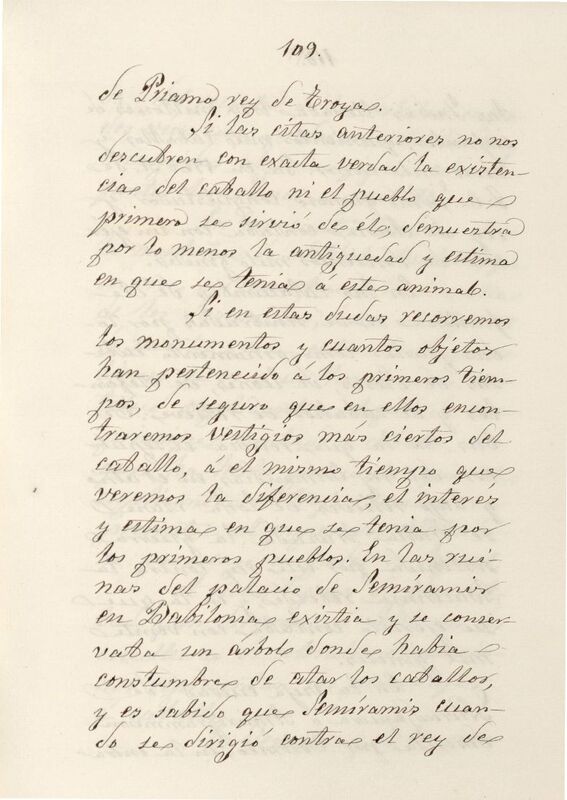 109.
de Priamo rey de Troya.
Si las citas anteriores no nos
descubren con exacta verdad la existen-
cia del caballo ni el pueblo que
primero se sirvió de él, demuestra
por lo menos la antiguedad y estima
en que se tenia á este animal.
Si en estas dudas recorremos
los monumentos y cuantos objetos
han pertenecido á los primeros tiem-
pos, de seguro que en ellos encon-
traremos vestigios más ciertos del
caballo, á el mismo tiempo que
veremos la diferencia, el interés
y estima en que se tenia por
los primeros pueblos. En las rui-
nas del palacio de Semíramis
en Babilonia existia y se conser-
vaba un árbol donde habia
constumbre de atar los caballos,
y es sabido que Semíramis cuan-
do se dirigió contra el rey de